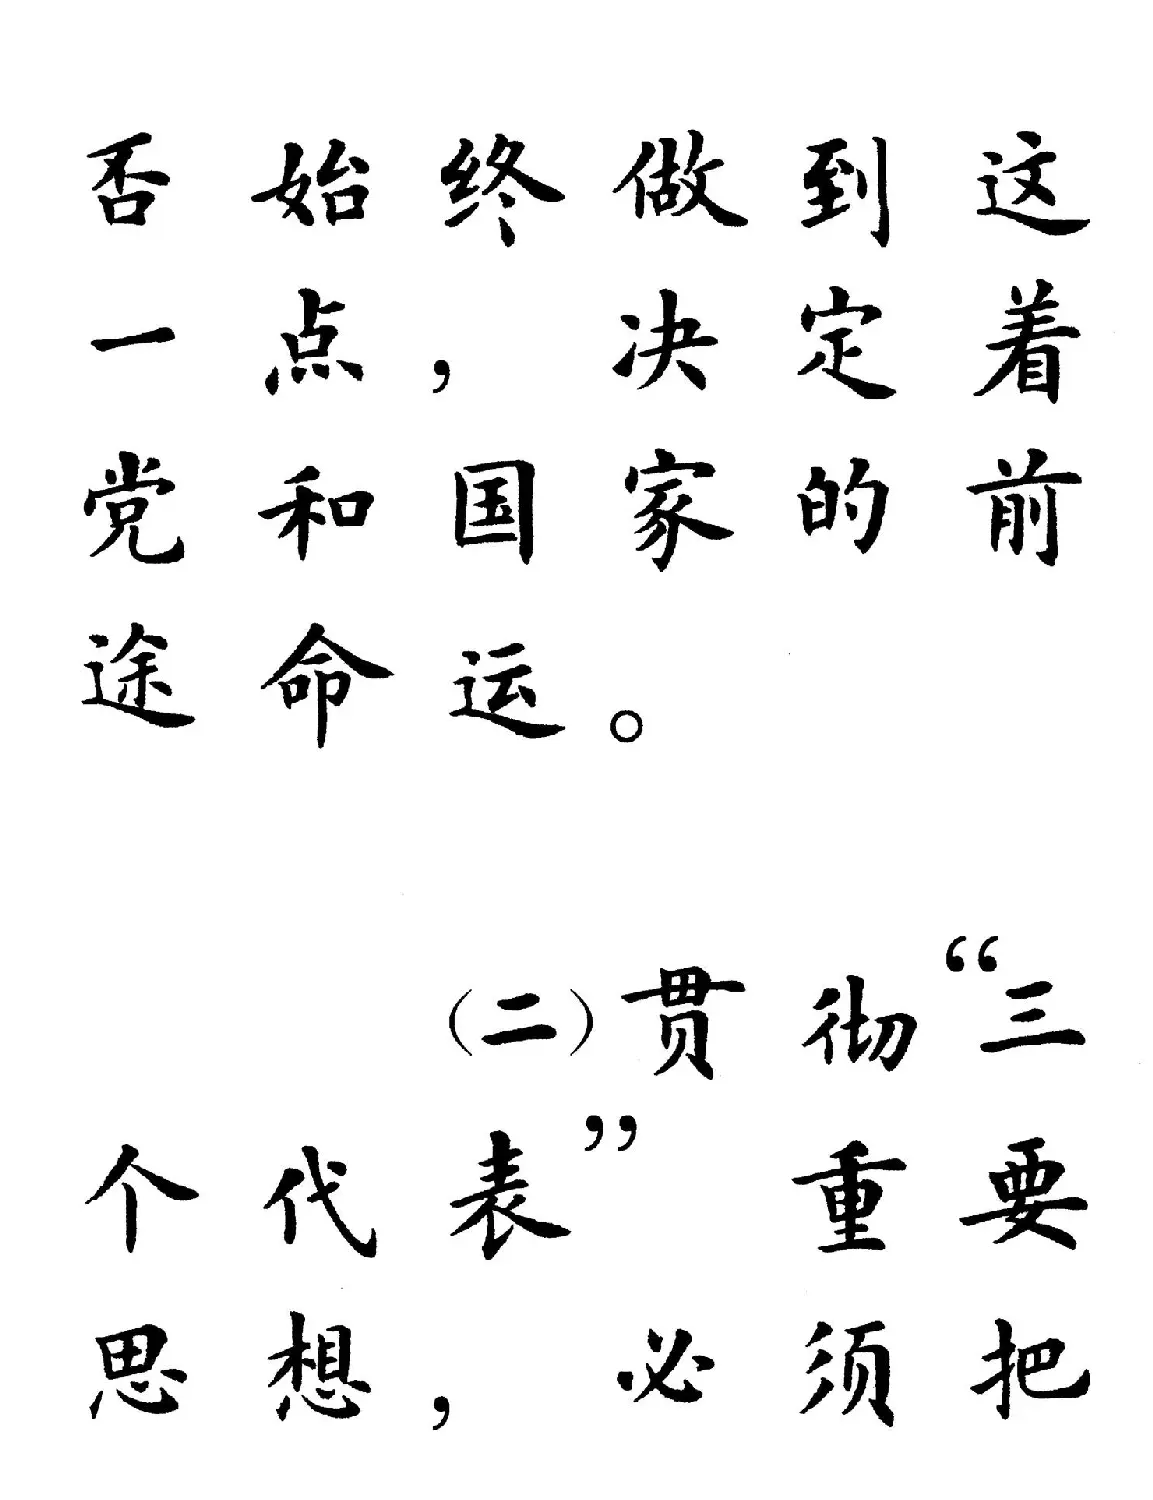 否始终做到这
一点，决定着
党和国家的前
途命运。
（二）贯彻“三
个代表”重要
思想，必须把